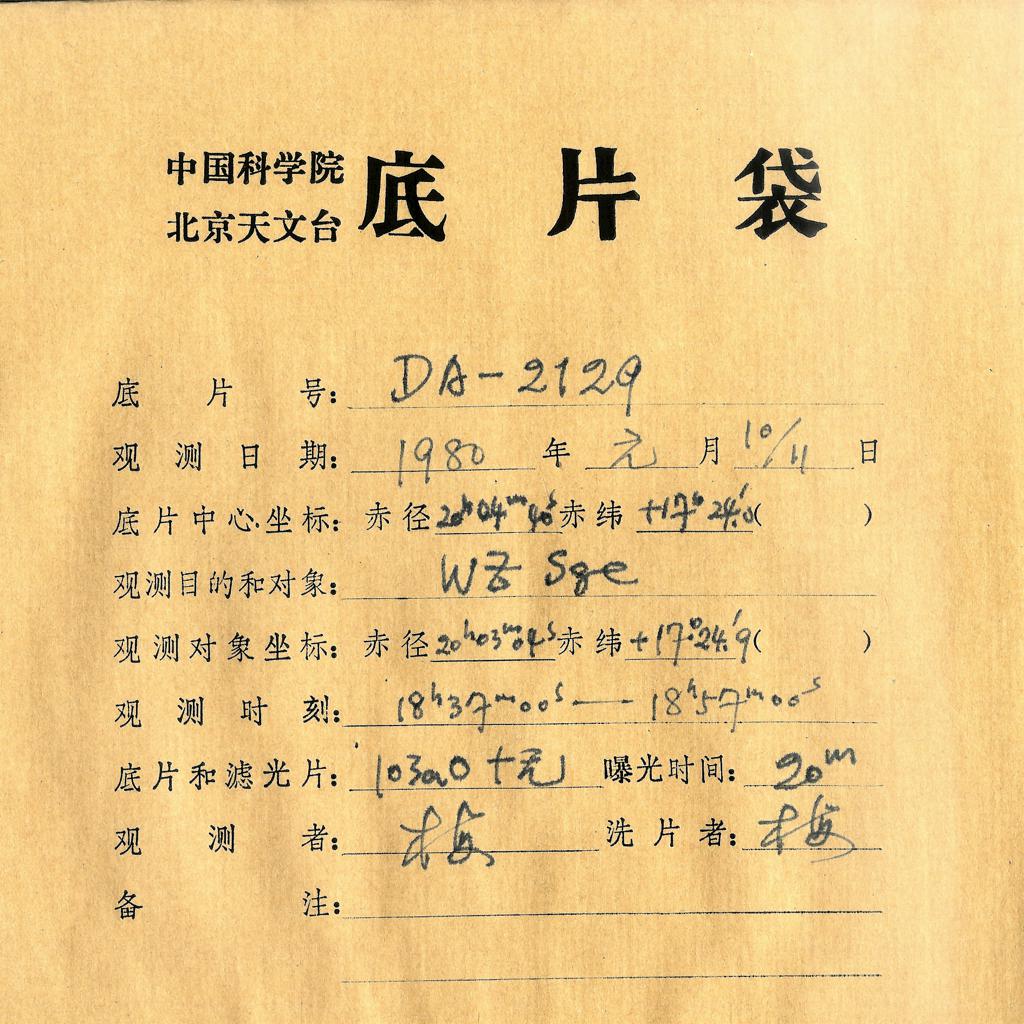 中国科学院
北京天文台
底片袋
底片号: DA-2129
观测日期: 1980 年 元 月 10/11 日
底片中心坐标: 赤径 20h04m40s 赤纬 +17°24.'0 ( )
观测目的和对象: WZ Sge
观测对象坐标: 赤径 20h03m04s 赤纬 +17°24.'9 ( )
观测时刻: 18h37m00s — 18h57m00s
底片和滤光片: 103aO +无 曝光时间: 20m
观测者: 梅 洗片者: 梅
备注: